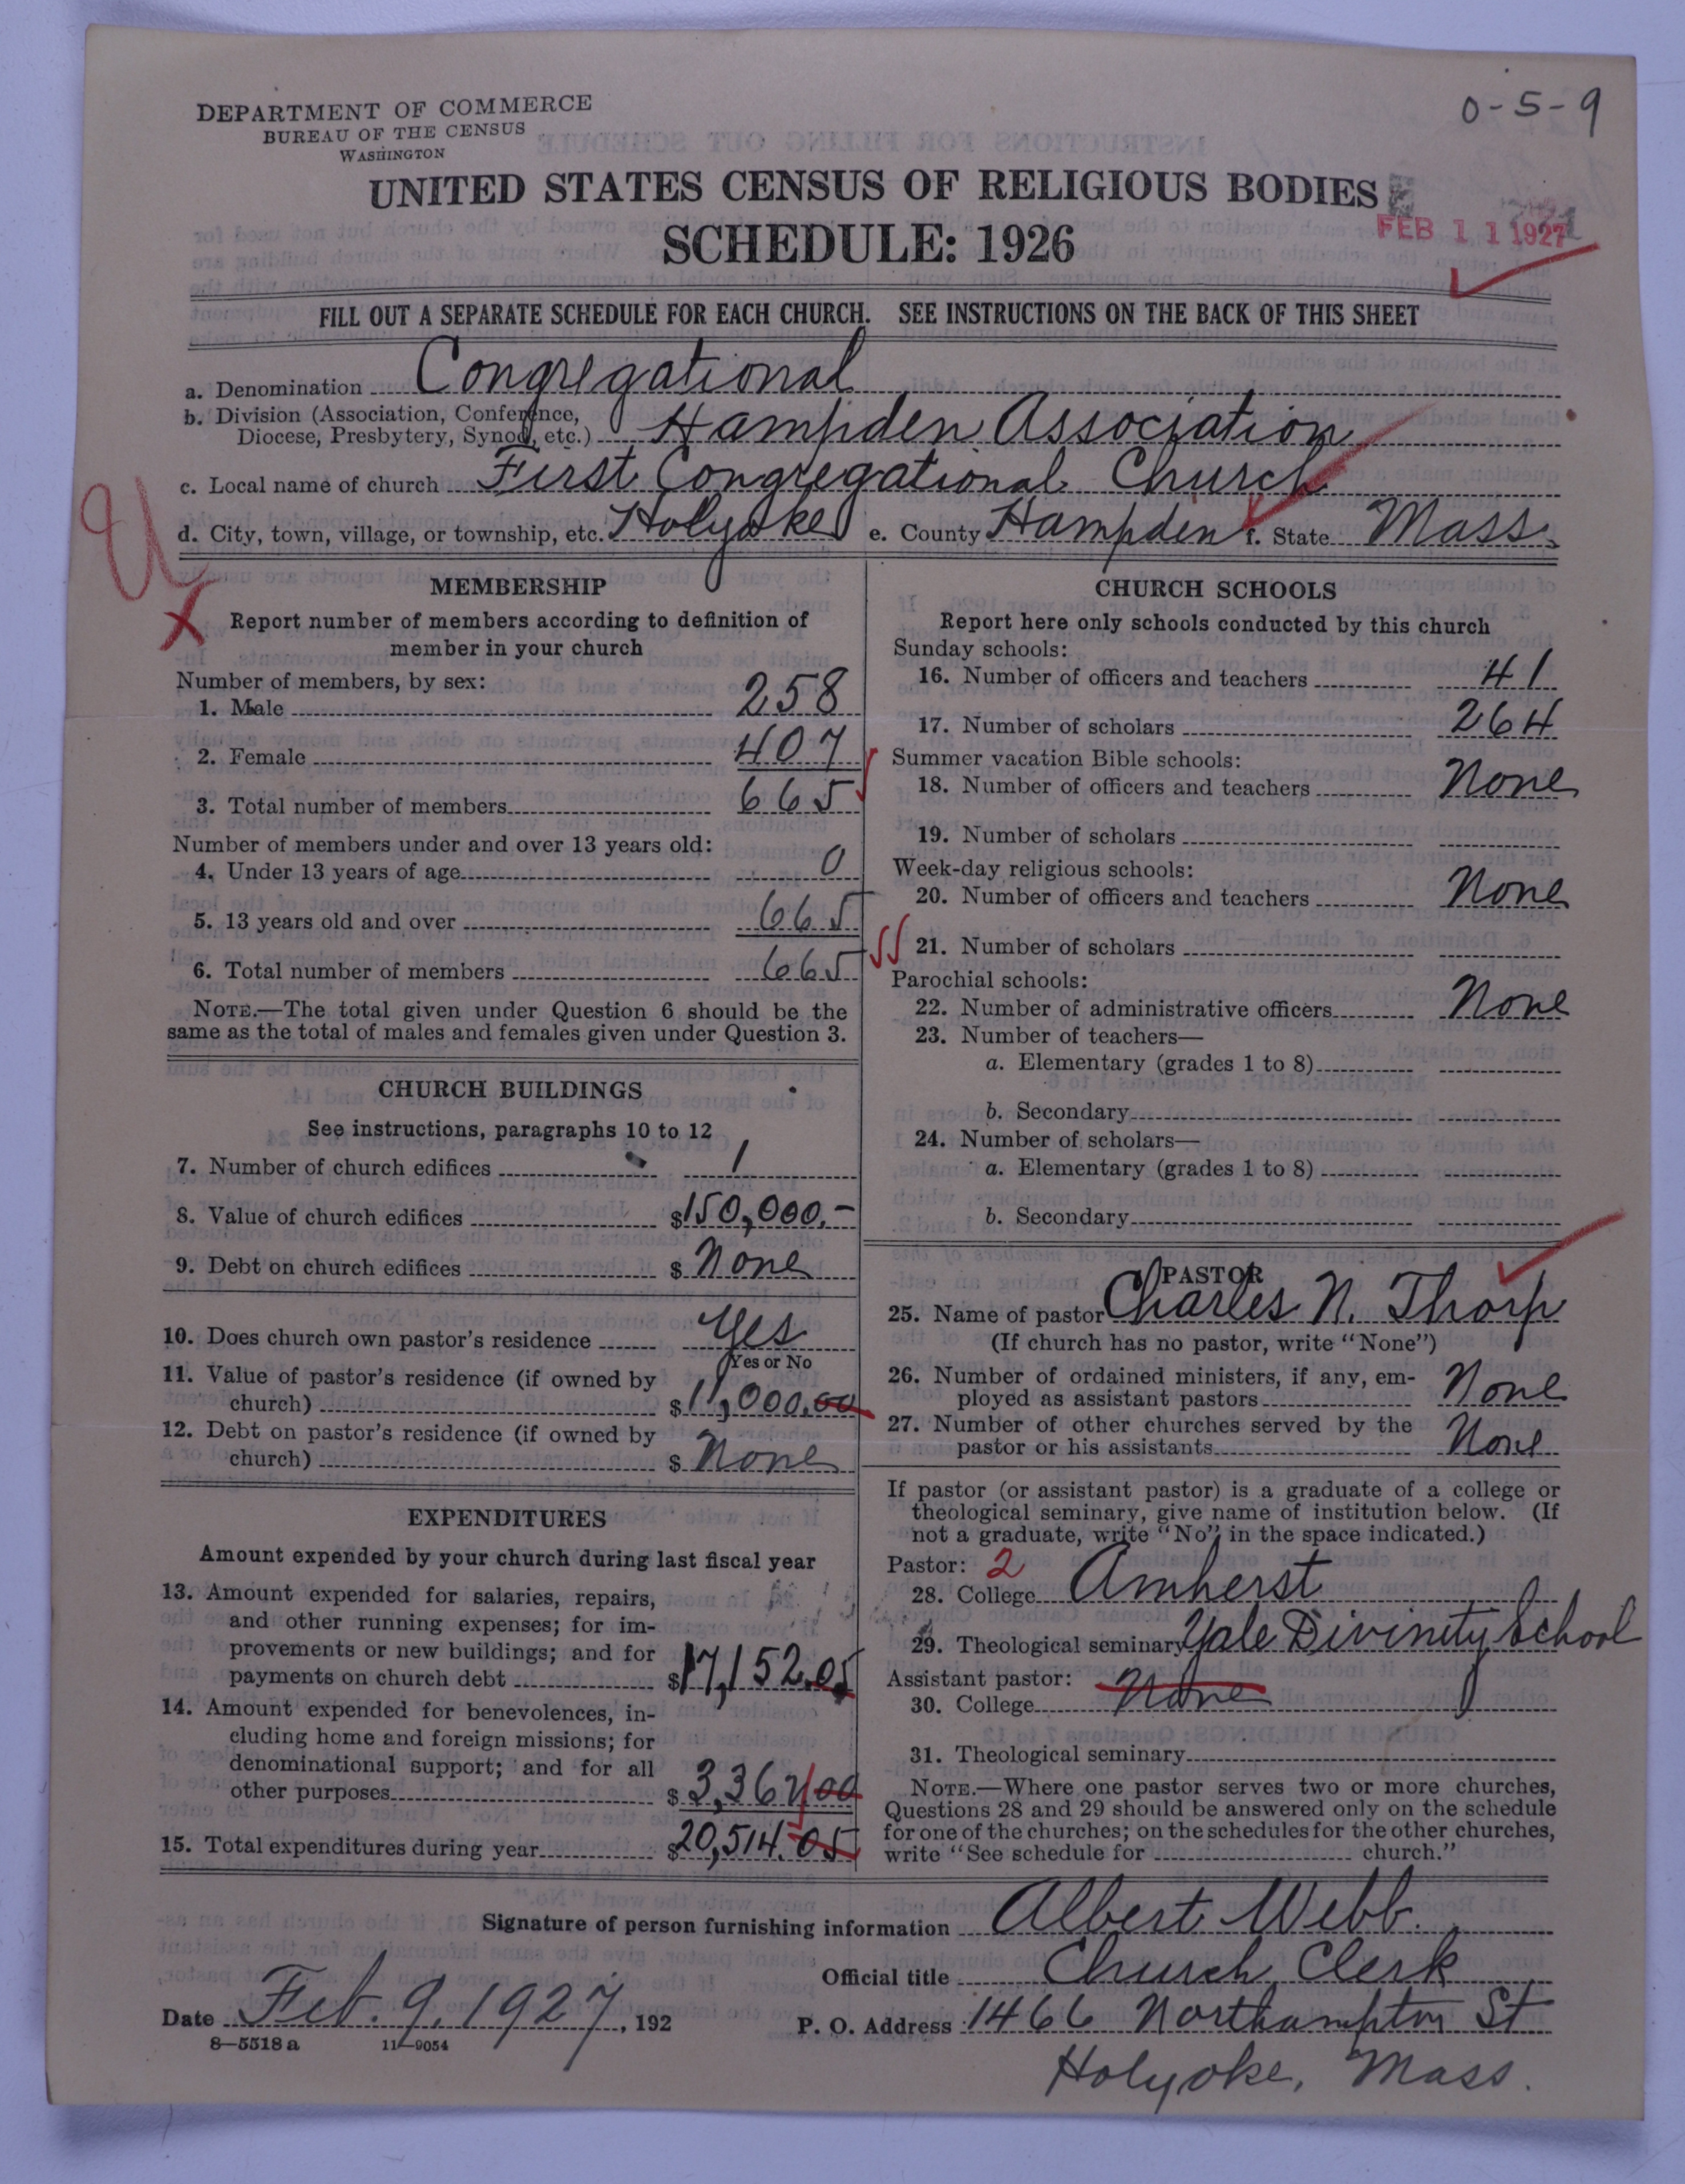 0-5-9
DEPARTMENT OF COMMERCE
BUREAU OF THE CENSUS
WASHINGTON
UNITED STATES CENSUS OF RELIGIOUS BODIES
SCHEDULE: 1926
FEB 11 1927
FILL OUT A SEPARATE SCHEDULE FOR EACH CHURCH. SEE INSTRUCTIONS ON THE BACK OF THIS SHEET
a. Denomination Congregational
b. Division (Association, Conference,
Diocese, Presbytery, Synod, etc.) Hampden Association
c. Local name of church First Congregational Church
d. City, town, village, or township, etc. Holyoke e. County Hampden f. State Mass.
MEMBERSHIP
Report number of members according to definition of
member in your church
Number of members, by sex:
1. Male 258
2. Female 407
3. Total number of members 665
Number of members under and over 13 years old:
4. Under 13 years of age 0
5. 13 years old and over 665
6. Total number of members 665
NOTE.—The total given under Question 6 should be the
same as the total of males and females given under Question 3.
CHURCH BUILDINGS
See instructions, paragraphs 10 to 12
7. Number of church edifices 1
8. Value of church edifices $150,000.-
9. Debt on church edifices $ None
10. Does church own pastor's residence Yes
Yes or No
11. Value of pastor's residence (if owned by
church) $11,000.00
12. Debt on pastor's residence (if owned by
church) $ None
EXPENDITURES
Amount expended by your church during last fiscal year
13. Amount expended for salaries, repairs,
and other running expenses; for im-
provements or new buildings; and for
payments on church debt $17,152.05
14. Amount expended for benevolences, in-
cluding home and foreign missions; for
denominational support; and for all
other purposes $3,362.00
15. Total expenditures during year $20,514.05
CHURCH SCHOOLS
Report here only schools conducted by this church
Sunday schools:
16. Number of officers and teachers 41
17. Number of scholars 264
Summer vacation Bible schools:
18. Number of officers and teachers None
19. Number of scholars
Week-day religious schools:
20. Number of officers and teachers None
21. Number of scholars
Parochial schools:
22. Number of administrative officers None
23. Number of teachers—
a. Elementary (grades 1 to 8)
b. Secondary
24. Number of scholars—
a. Elementary (grades 1 to 8)
b. Secondary
PASTOR
25. Name of pastor Charles N. Thorp
(If church has no pastor, write "None")
26. Number of ordained ministers, if any, em-
ployed as assistant pastors None
27. Number of other churches served by the
pastor or his assistants None
If pastor (or assistant pastor) is a graduate of a college or
theological seminary, give name of institution below. (If
not a graduate, write "No" in the space indicated.)
Pastor: 2
28. College Amherst
29. Theological seminary Yale Divinity School
Assistant pastor:
30. College None
31. Theological seminary
NOTE.—Where one pastor serves two or more churches,
Questions 28 and 29 should be answered only on the schedule
for one of the churches; on the schedules for the other churches,
write "See schedule for church."
Signature of person furnishing information Albert Webb.
Official title Church Clerk
Date Feb. 9, 1927, 192
P. O. Address 1466 Northampton St
Holyoke, Mass.
8—5518a 11—9054